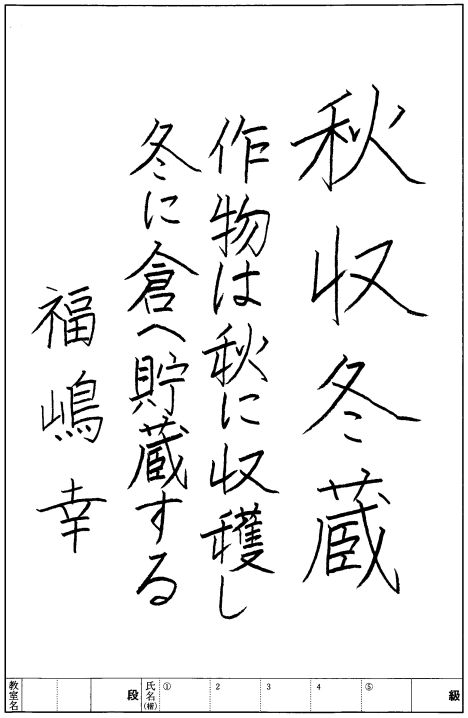 秋収冬蔵
作物は秋に収穫し
冬に倉へ貯蔵する
福嶋幸
教室名 段 氏名(楷) ① 2 3 4 ⑤ 級